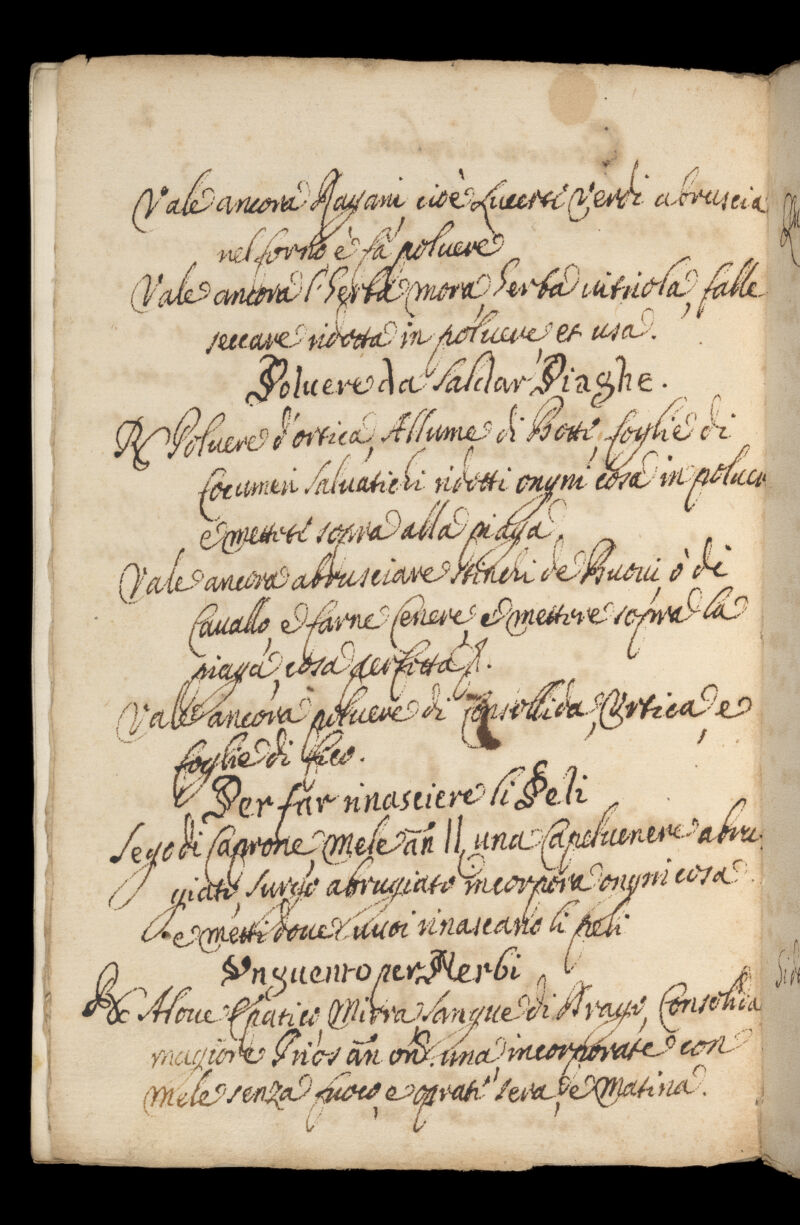 Vale ancora Ragani, cioè Lucerti Verdi abruscia
nel forno è fà poluere
Vale ancora l'herba mora, herba uitriola, falle
seccare ridotta in poluere et usa.
Poluere da Saldar Piaghe.
Rx Poluere d'ortica, Allume di Botti, foglie di
Cocumeri Saluatichi ridotti ongni cosa in poluer
e metteti sopra alla piaga
Vale ancora abrusciare stinchi de Buoui, ò di
Cauallo, e farne Cenere, e mettere sopra la
piaga, cosa perfetta.
Vale ancora poluere di Consollida, Vrtica, e
foglie di fico.
Per far rinasciere li Peli
Sego di Caprone, Mele añ II, una Capeluenere abru
giato, abrugiato incorpora ongni cosa
e metti doue uuoi rinascano li peli
Vnguento per Nerbi
Rx Aloue Epatico, Mirra, Sangue di Drago, Consolida
magiore añ una incorporate con
Mele senza fuoco, e oprati sera, e Matina.